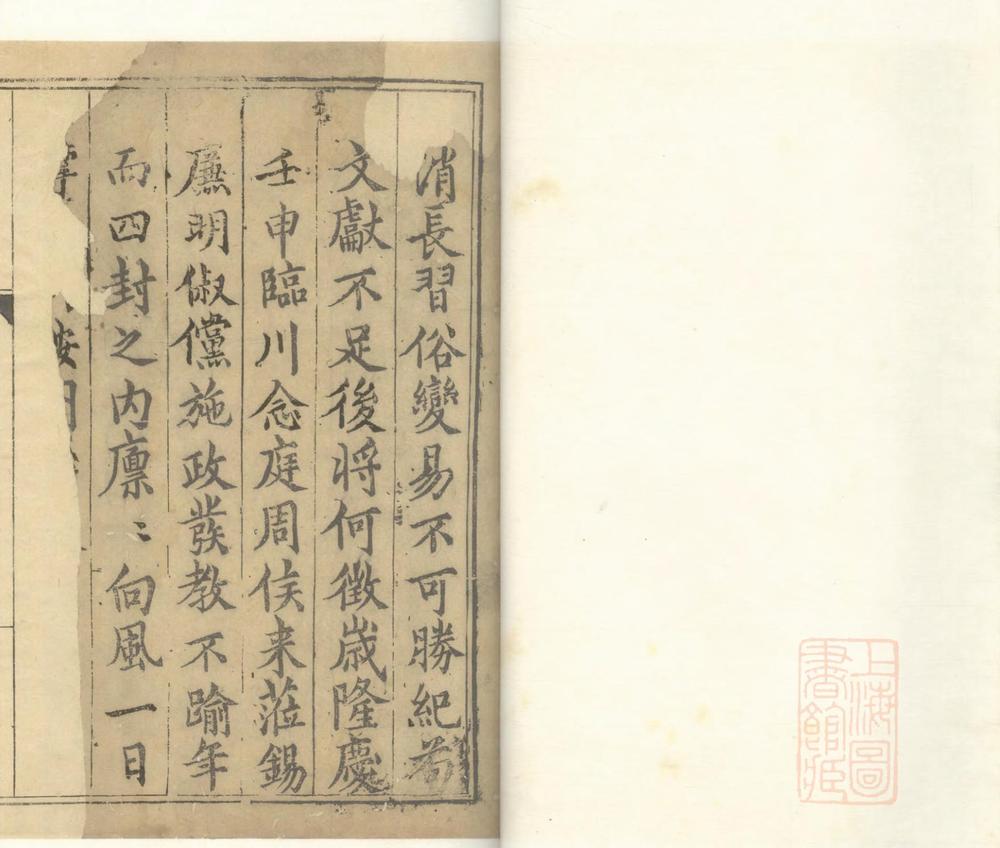 消長習俗變易不可勝紀若
文獻不足後將何徵歲隆慶
壬申臨川念庭周侯来蒞錫
廉明俶儻施政發教不踰年
而四封之内凛〻向風一日
上海圖
書館藏